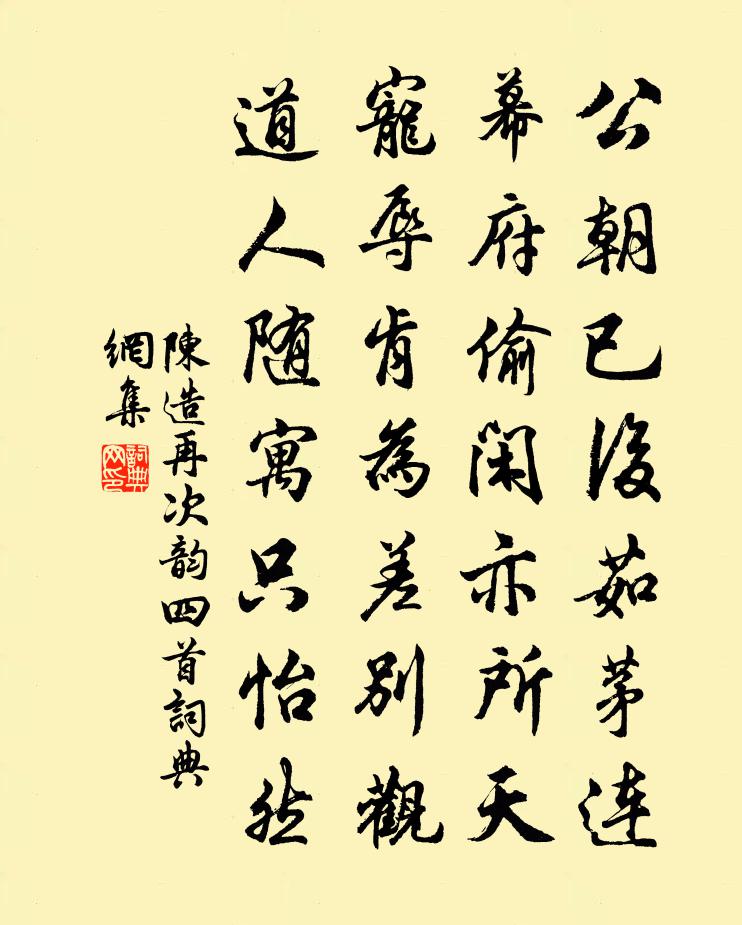 公朝已後茹茅连
幕府偷閑亦所天
寵辱肯為差別觀
道人随寓只怡然
陳造再次韵四首詞典
網集
詞典
网印